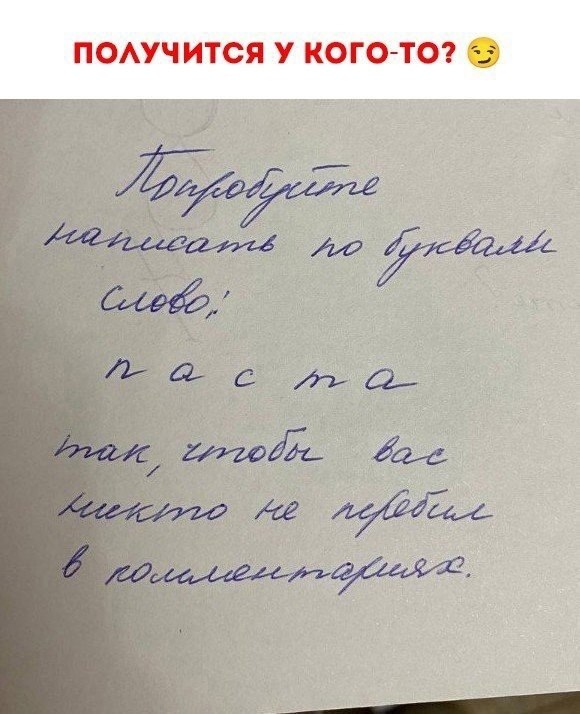 ПОЛУЧИТСЯ У КОГО-ТО? 😏
Попробуйте
написать по буквам
слово:
п а с т а
так, чтобы вас
никто не перебил
в комментариях.